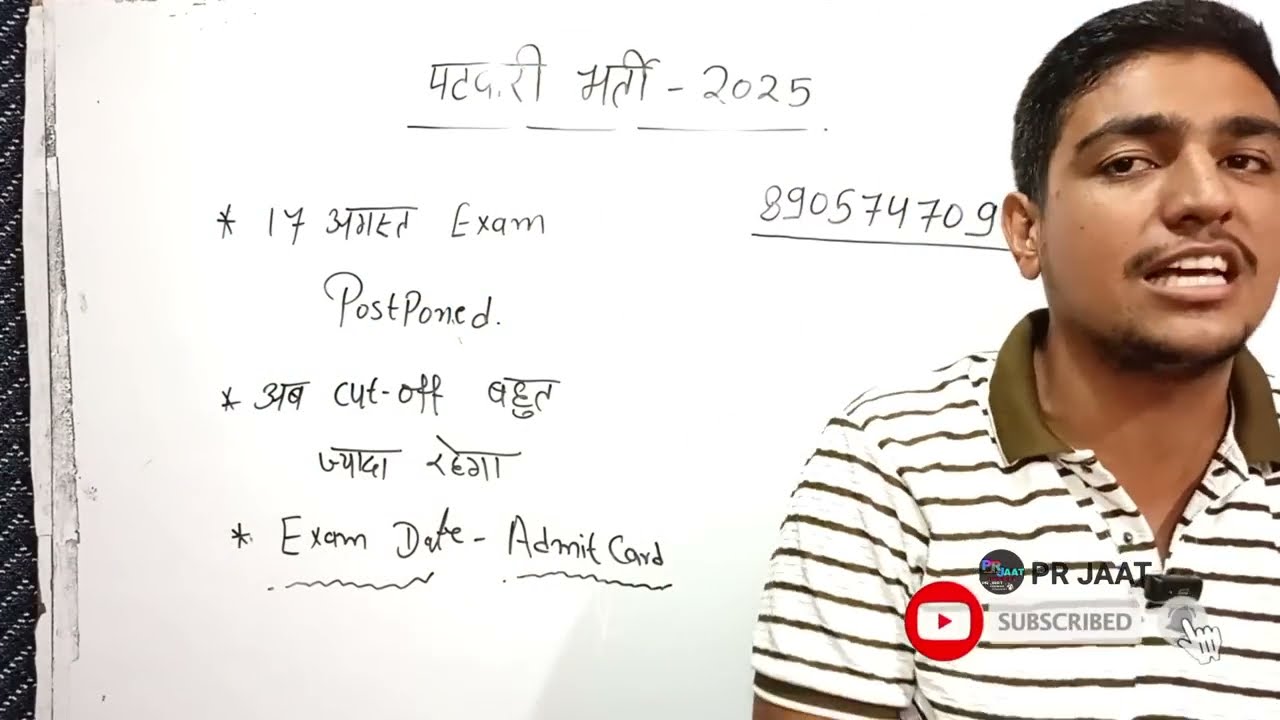 पटवारी भर्ती - 2025
* 17 अगस्त Exam
890574709
Postponed.
* अब cut-off बहुत
ज्यादा रहेगा
* Exam Date - Admit Card
PR JAAT
PR JAAT
SUBSCRIBED